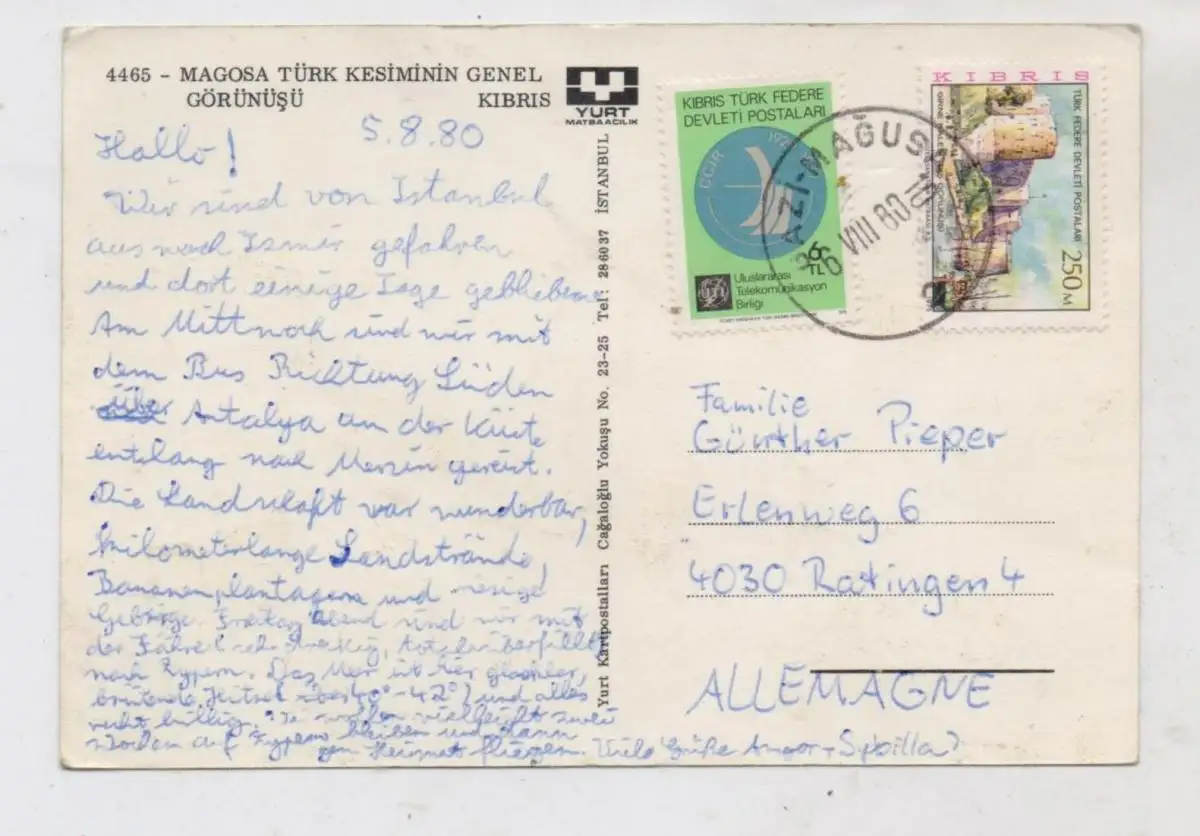 4465 - MAGOSA TÜRK KESİMİNİN GENEL
GÖRÜNÜŞÜ KIBRIS
YURT
MATBAACILIK
5.8.80
Hallo!
Wir sind von Istanbul
aus nach Izmir gefahren
und dort einige Tage geblieben.
Am Mittwoch sind wir mit
dem Bus Richtung Süden
über Antalya an der Küste
entlang nach Mersin gereist.
Die Landschaft war wunderbar,
kilometerlange Sandstrände,
Bananenplantagen und riesige
Gebirge. Freitag Abend sind wir mit
der Fähre (sehr dreckig, total überfüllt)
nach Zypern. Das Meer ist hier
brütende Hitze (über 40°-42°) und alles
recht billig. Wir wollen vielleicht zwei
Wochen auf Zypern bleiben und dann
gen Heimat fliegen. Viele Grüße
Yurt Kartpostalları Cağaloğlu Yokuşu No. 23-25 Tel: 286037 İSTANBUL
KIBRIS TÜRK FEDERE
DEVLETİ POSTALARI
CCIR
6
TL
UTI
Uluslararası
Telekomünikasyon
Birliği
KIBRIS
TÜRK FEDERE DEVLETİ POSTALARI
250 M
AZİ-MAĞUS
6 VIII 80
Familie
Günther Pieper
Erlenweg 6
4030 Ratingen 4
ALLEMAGNE